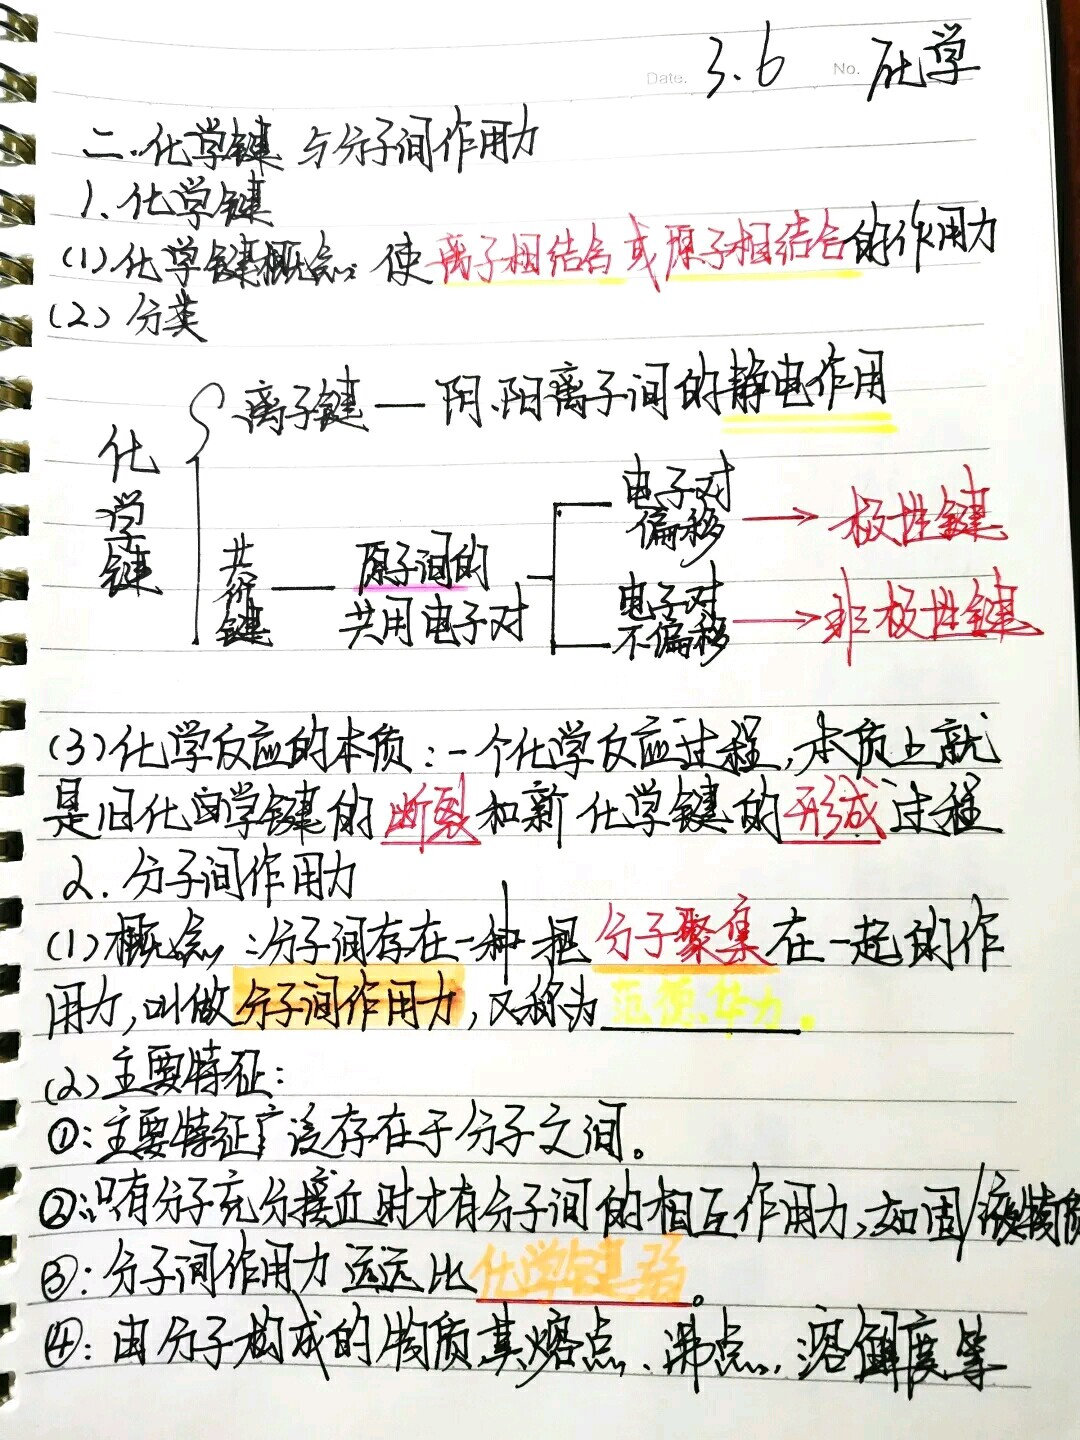 Date. 3.6 No. 化学
二.化学键与分子间作用力
1.化学键
(1)化学键概念:使离子相结合或原子相结合的作用力
(2)分类
离子键—阴、阳离子间的静电作用
化学键
电子对偏移→极性键
共价键—原子间的共用电子对
电子对不偏移→非极性键
(3)化学反应的本质:一个化学反应过程,本质上就
是旧化学键的断裂和新化学键的形成过程
2.分子间作用力
(1)概念:分子间存在一种把分子聚集在一起的作
用力,叫做分子间作用力,又称为范德华力。
(2)主要特征:
①:主要特征广泛存在于分子之间。
②:只有分子充分接近时才有分子间的相互作用力,如固/液物质
③:分子间作用力远远比化学键弱。
④:由分子构成的物质其熔点、沸点、溶解度等